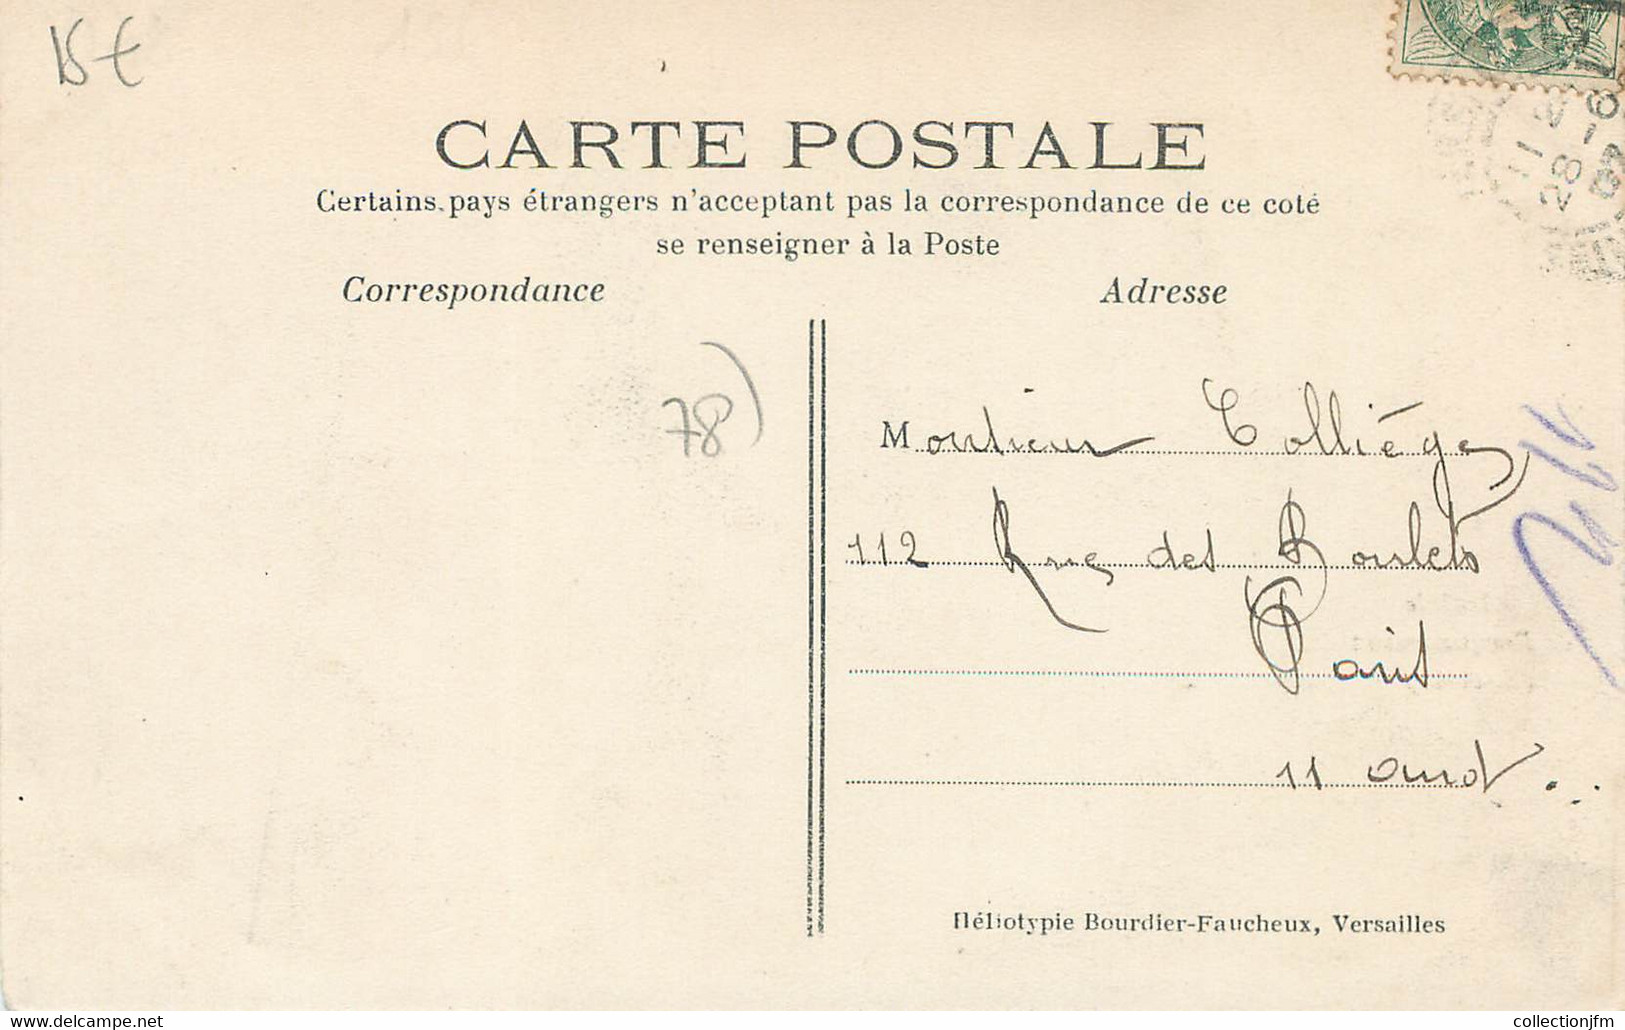 15 €
CARTE POSTALE
Certains pays étrangers n'acceptant pas la correspondance de ce coté
se renseigner à la Poste
Correspondance
Adresse
78)
11
28 - 6
07
Monsieur Colliége
112 Rue des Boulets
Paris
11 arrd
Héliotypie Bourdier-Faucheux, Versailles
www.delcampe.net
collectionjfm